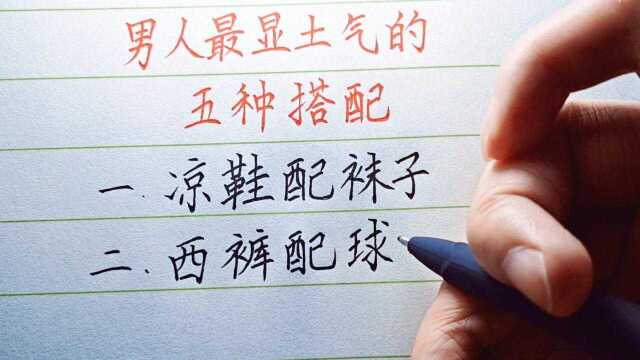 男人最显土气的
五种搭配
一.凉鞋配袜子
二.西裤配球